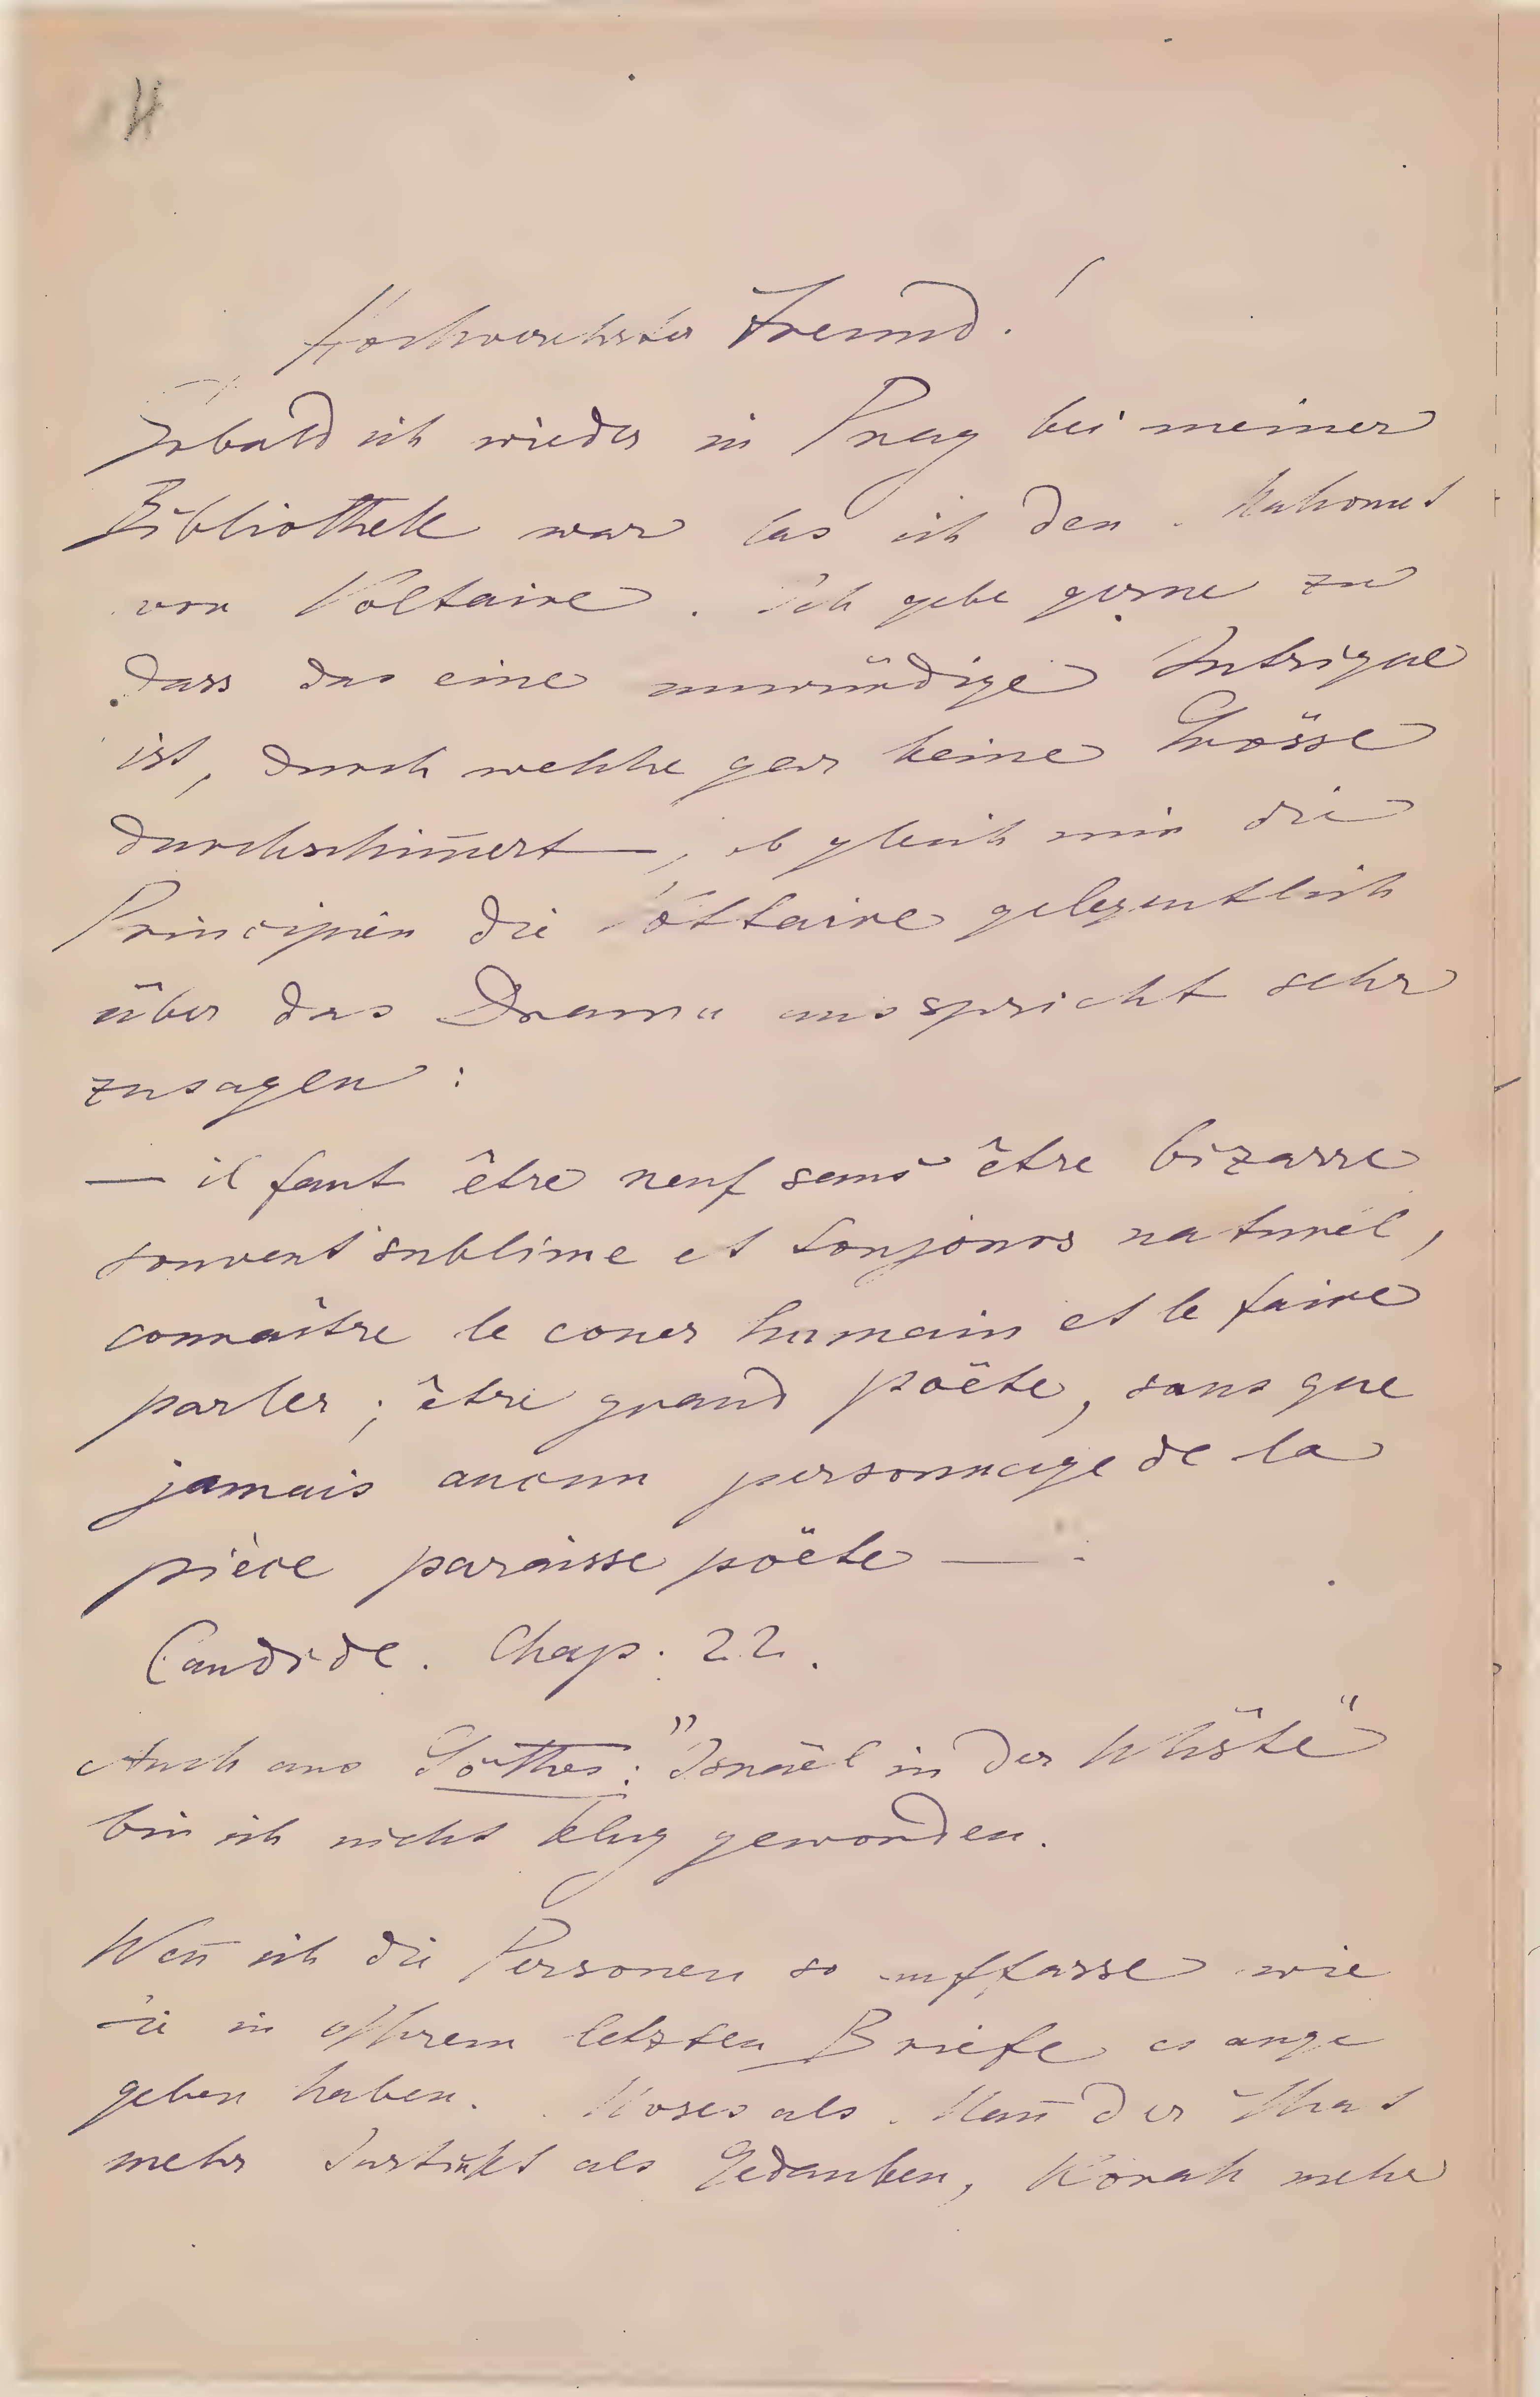 Hochverehrter Freund!
Sobald ich wieder in Prag bei meiner
Bibliothek war las ich den Mahomet
von Voltaire. Ich gebe gerne zu
dass das eine unwürdige Intrigue
ist, durch welche gar keine Grösse
durchschim̅ert, obgleich mir die
Principien die Voltaire gelegentlich
über das Drama ausspricht sehr
zusagen:
— il faut être neuf sans être bizarre
souvent sublime et toujours naturel,
connaître le coeur humain et le faire
parler; être grand poëte, sans que
jamais aucun personnage de la
pièce paraisse poëte —
Candide. Chap. 22.
Auch aus Göthes: "Israël in der Wüste"
bin ich nicht klug geworden.
Wen̅ ich die Personen so auffasse wie
Sie in Ihrem letzten Briefe es ange
geben haben. Moses als Man̅ der That
mehr Instinkt als Gedanken, Korah mehr